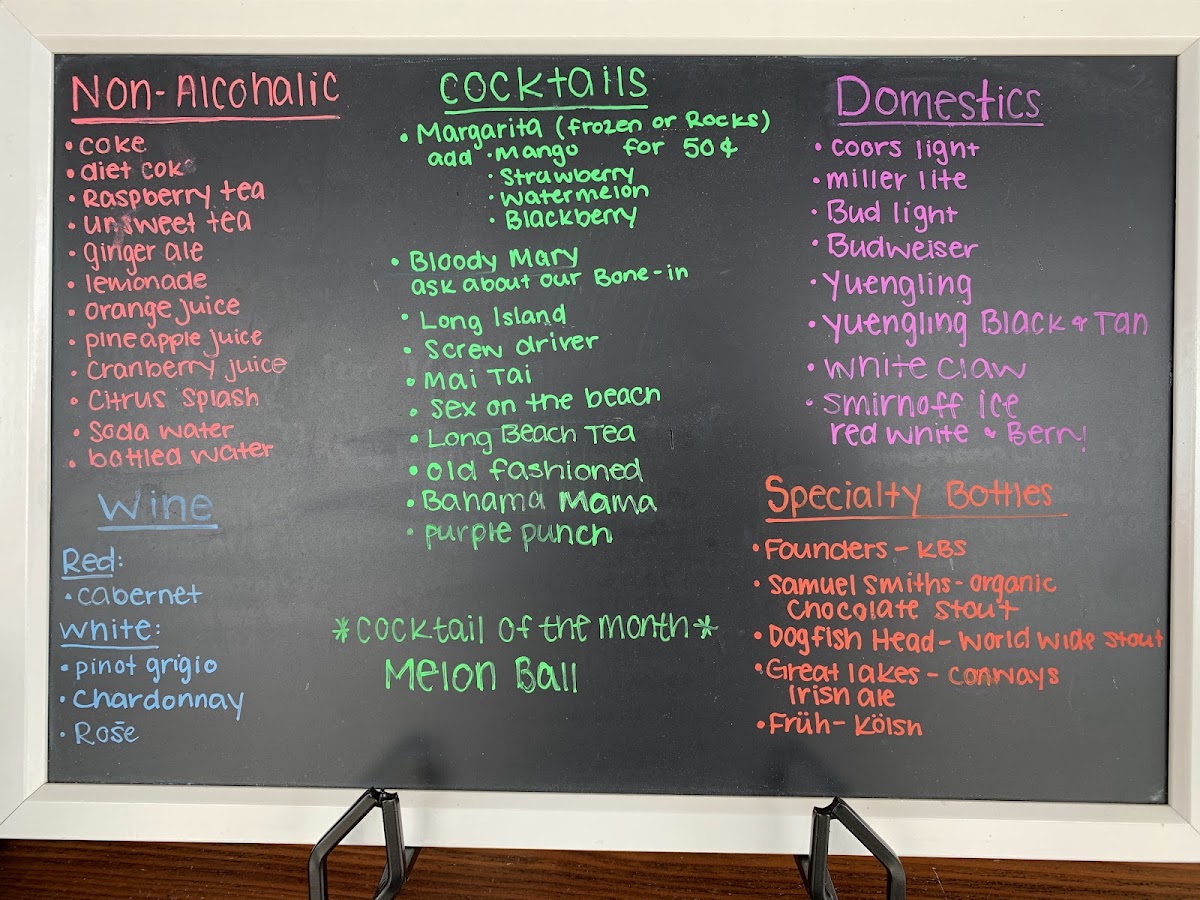 Non-Alcoholic
• coke
• diet cok
• Raspberry tea
• unsweet tea
• ginger ale
• lemonade
• orange juice
• pineapple juice
• Cranberry juice
• Citrus Splash
• Soda water
• bottled water
Wine
Red:
• cabernet
White:
• pinot grigio
• Chardonnay
• Roše
Cocktails
• Margarita (frozen or Rocks)
add • Mango for 50¢
• Strawberry
• Watermelon
• Blackberry
• Bloody Mary
ask about our Bone-in
• Long Island
• Screw driver
• Mai Tai
• Sex on the beach
• Long Beach Tea
• old fashioned
• Bahama Mama
• purple punch
*Cocktail of the month*
Melon Ball
Domestics
• coors light
• miller lite
• Bud light
• Budweiser
• Yuengling
• Yuengling Black & Tan
• White Claw
• Smirnoff Ice
red white & Berry
Specialty Bottles
• Founders - KBS
• Samuel Smiths - organic
Chocolate Stout
• Dogfish Head - World Wide Stout
• Great lakes - Conways
Irish ale
• Früh - Kölsh